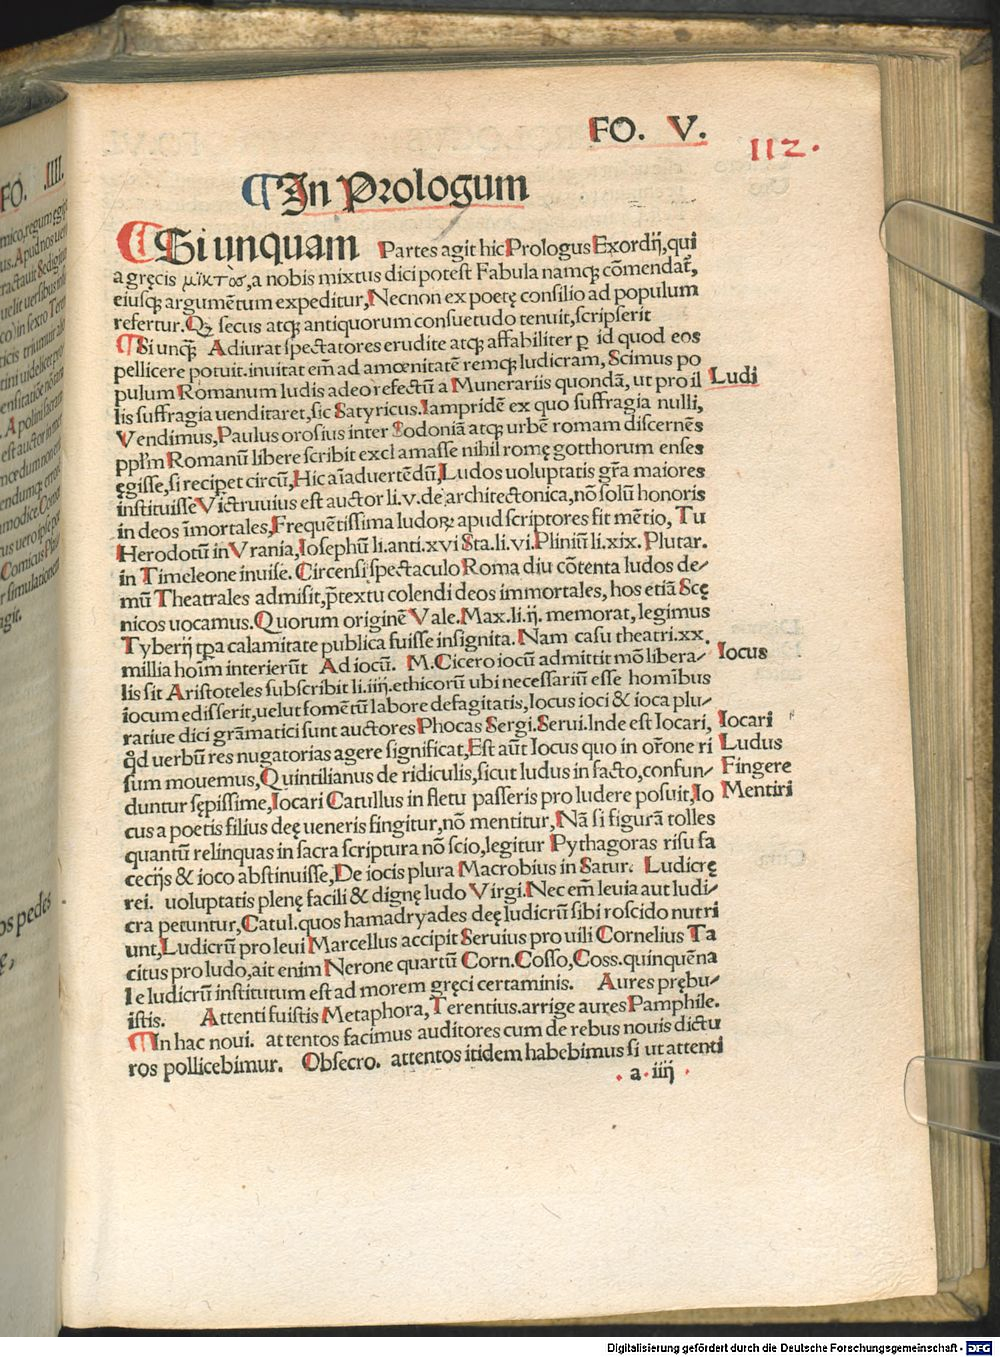 FO. V.
112.
¶In Prologum
¶Si unquam Partes agit hic Prologus Exordij, qui
a gręcis μικτὸσ, a nobis mixtus dici potest Fabula namq; cōmendat᷑,
eiusq; argumētum expeditur, Necnon ex poetę consilio ad populum
refertur. Qꝫ secus atq; antiquorum consuetudo tenuit, scripserit
¶Si unq̄; Adiurat spectatores erudite atq; affabiliter p id quod eos
pellicere potuit. inuitat em̄ ad amœnitatē remq; ludicram, Scimus po
pulum Romanum ludis adeo refectū a Munerariis quondā, ut pro il
lis suffragia uenditaret, sic Satyricus. Iampridē ex quo suffragia nulli,
Vendimus, Paulus orosius inter Sodoniā atq; urbē romam discernēs
pplm̄ Romanū libere scribit exclamasse nihil romę gotthorum enses
ęgisse, si recipet circū, Hic aīaduertēdū, Ludos uoluptatis gr̄a maiores
instituisse Victruuius est auctor li. v. de architectonica, nō solū honoris
in deos īmortales, Frequētissima ludoꝝ apud scriptores fit mētio, Tu
Herodotū in Vrania, Iosephū li. anti. xvi Sta. li. vi. Pliniū li. xix. Plutar.
in Timeleone inuise. Circensi spectaculo Roma diu cōtenta ludos de-
mū Theatrales admisit, p̄textu colendi deos immortales, hos etiā Scę
nicos uocamus. Quorum originē Vale. Max. li. ij. memorat, legimus
Tyberij tp̄a calamitate publica fuisse insignita. Nam casu theatri. xx.
millia hoīm interierūt Ad iocū. M. Cicero iocū admittit mō libera-
lis sit Aristoteles subscribit li. iiij. ethicorū ubi necessariū esse homībus
iocum edisserit, uelut fomētū labore defagitatis, Iocus ioci & ioca plu-
ratiue dici grāmatici sunt auctores Phocas Sergi. Serui. Inde est Iocari,
qd̄ uerbū res nugatorias agere significat, Est aūt Iocus quo in or̄one ri
sum mouemus, Quintilianus de ridiculis, sicut ludus in facto, confun-
duntur sępissime, Iocari Catullus in fletu passeris pro ludere posuit, Io
cus a poetis filius deę ueneris fingitur, nō mentitur, Nā si figurā tolles
quantū relinquas in sacra scriptura nō scio, legitur Pythagoras risu fa
cecijs & ioco abstinuisse, De iocis plura Macrobius in Satur. Ludicrę
rei. uoluptatis plenę facili & dignę ludo Virgi. Nec em̄ leuia aut ludi-
cra petuntur, Catul. quos hamadryades deę ludicrū sibi roscido nutri
unt, Ludicrū pro leui Marcellus accipit Seruius pro uili Cornelius Ta
citus pro ludo, ait enim Nerone quartū Corn. Cosso, Coss. quinquēna
le ludicrū institutum est ad morem gręci certaminis. Aures prębu-
istis. Attenti fuistis Metaphora, Terentius. arrige aures Pamphile.
¶In hac noui. attentos facimus auditores cum de rebus nouis dictu
ros pollicebimur. Obsecro. attentos itidem habebimus si ut attenti
a. iiij
Ludi
Iocus
Iocari
Ludus
Fingere
Mentiri
FO. IIII.
os pedes
agit.
Digitalisierung gefördert durch die Deutsche Forschungsgemeinschaft - DFG